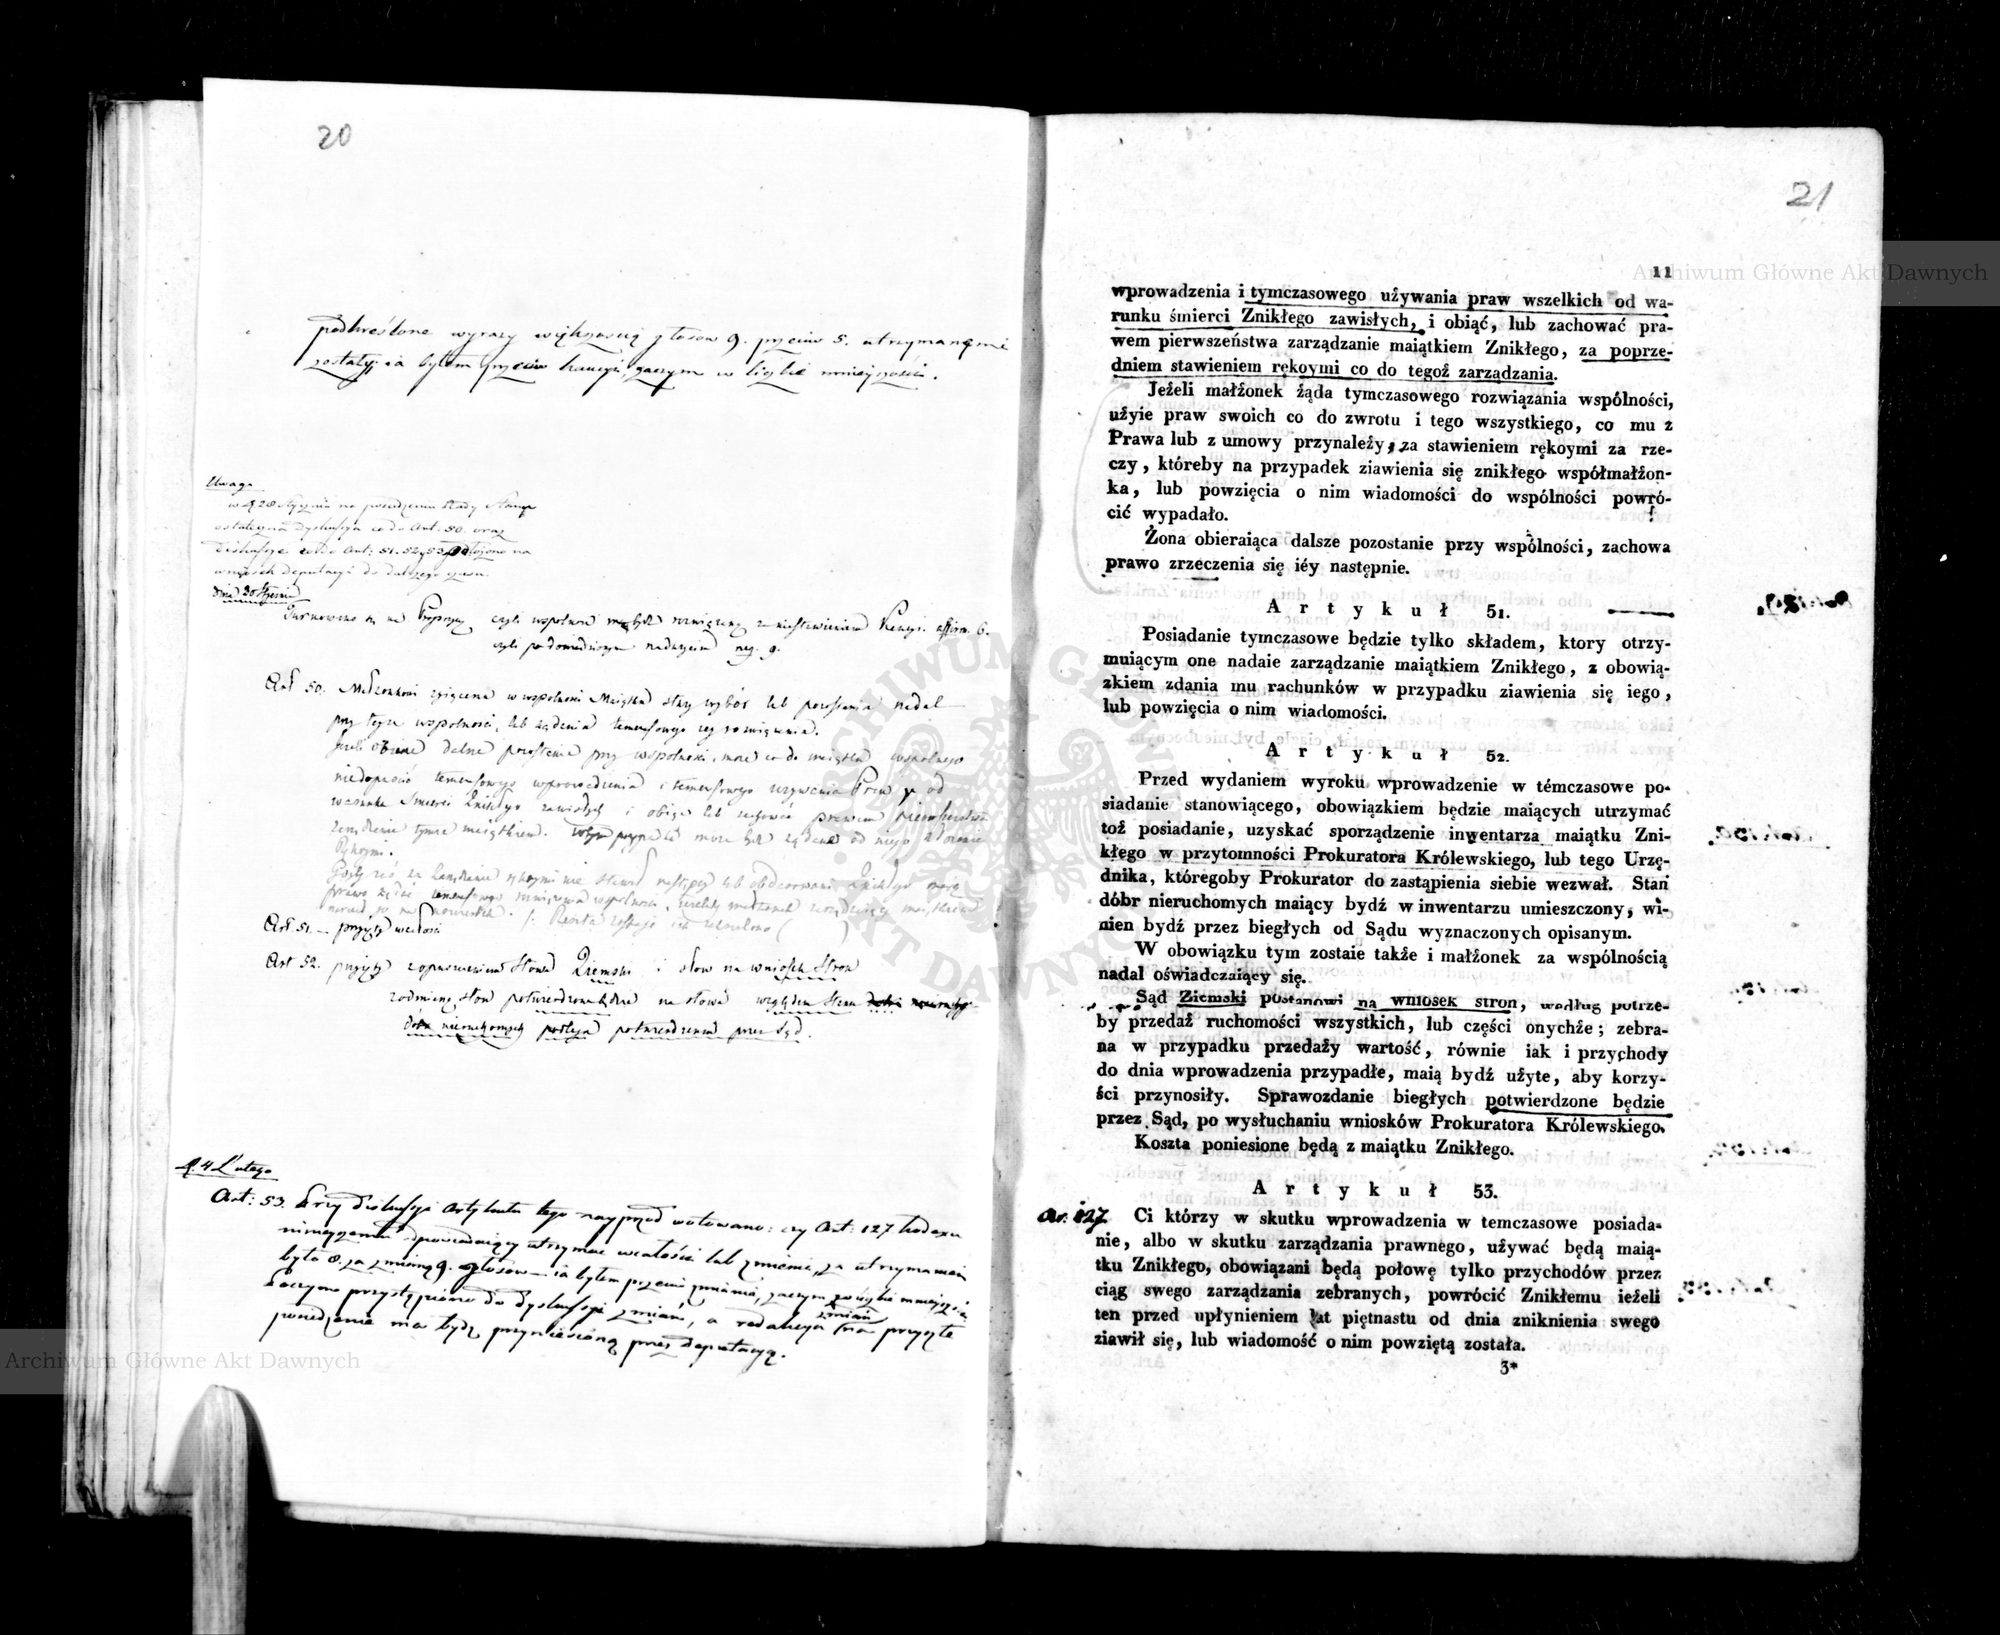 20
podkreślone wyrazy większością głosów 9. przeciw 5. utrzymanemi
zostały; ia byłem przeciw kaucyi, zaczym w liczbie mnieyszości.
Uwaga
w d. 28 Stycznia na posiedzeniu Rady Stanu
ostateczna dyskusya co do Art: 50. oraz
diskusye co do Art: 51. 52. 53. odłożono na
wniosek deputacyi do dalszego czasu.
dnia 30 Stycznia
na Propozycyą czyli wspólność może być rozwiązaną za niestawieniem Kaucyi. affirm. 6.
czyli po dowiedzionym nadużyciu neg. 9.
Art 50. Małżonkowi w wspólności Maiątku służy wybór lub pozostania nadal
przy teyże wspólności, lub żądania temczasowego iey rozwiązania.
Jeżeli obierze dalsze pozostanie przy wspólności, może co do maiątku wspólnego
niedopuścić temczasowego wprowadzenia i temczasowego używania Praw od
warunku śmierci Znikłego zawisłych i obiąć lub zachować prawem pierwszeństwa
zarządzanie tymże maiątkiem. W tym przypadku może być żądane od niego złożenie
Rękoymi.
Art 51. – przyięty w całości
Art 52. przyięty z opuszczeniem słowa Ziemski i słow na wniosek Stron
z odmianą słow potwierdzone będzie na słowa względem stanu
dóbr nieruchomych potwierdzenia przez Sąd.
d. 4 Lutego
Art: 53. Przy diskusyi Artykułu tego nayprzod wotowano: czy Art: 127 kodexu
ninieyszemu odpowiadaiący utrzymać w całości lub zmienić, za utrzymaniem
było 8. za zmianą 9. głosów – ia byłem przeciw zmianie, zaczym w liczbie mnieyszości
Zaczym przystąpiono do dyskusyi zmian, a redakcya zmian na przyszłe
posiedzenie ma bydź przyniesiona przez deputacyą.
21
11
wprowadzenia i tymczasowego używania praw wszelkich od wa-
runku śmierci Znikłego zawisłych, i obiąć, lub zachować pra-
wem pierwszeństwa zarządzanie maiątkiem Znikłego, za poprze-
dniem stawieniem rękoymi co do tegoż zarządzania.
Jeżeli małżonek żąda tymczasowego rozwiązania wspólności,
użyie praw swoich co do zwrotu i tego wszystkiego, co mu z
Prawa lub z umowy przynależy, za stawieniem rękoymi za rze-
czy, któreby na przypadek ziawienia się znikłego współmałżon-
ka, lub powzięcia o nim wiadomości do wspólności powró-
cić wypadało.
Żona obieraiąca dalsze pozostanie przy wspólności, zachowa
prawo zrzeczenia się iéy następnie.
Artykuł 51.
Posiadanie tymczasowe będzie tylko składem, ktory otrzy-
muiącym one nadaie zarządzanie maiątkiem Znikłego, z obowią-
zkiem zdania mu rachunków w przypadku ziawienia się iego,
lub powzięcia o nim wiadomości.
Artykuł 52.
Przed wydaniem wyroku wprowadzenie w témczasowe po-
siadanie stanowiącego, obowiązkiem będzie maiących utrzymać
toż posiadanie, uzyskać sporządzenie inwentarza maiątku Zni-
kłego w przytomności Prokuratora Królewskiego, lub tego Urzę-
dnika, któregoby Prokurator do zastąpienia siebie wezwał. Stan
dóbr nieruchomych maiący bydź w inwentarzu umieszczony, wi-
nien bydź przez biegłych od Sądu wyznaczonych opisanym.
W obowiązku tym zostaie także i małżonek za wspólnością
nadal oświadczaiący się.
Sąd Ziemski postanowi na wniosek stron, według potrze-
by przedaż ruchomości wszystkich, lub części onychże; zebra-
na w przypadku przedaży wartość, równie iak i przychody
do dnia wprowadzenia przypadłe, maią bydź użyte, aby korzy-
ści przynosiły. Sprawozdanie biegłych potwierdzone będzie
przez Sąd, po wysłuchaniu wniosków Prokuratora Królewskiego.
Koszta poniesione będą z maiątku Znikłego.
Artykuł 53.
Ar. 127. Ci którzy w skutku wprowadzenia w temczasowe posiada-
nie, albo w skutku zarządzania prawnego, używać będą maią-
tku Znikłego, obowiązani będą połowę tylko przychodów przez
ciąg swego zarządzania zebranych, powrócić Znikłemu ieżeli
ten przed upłynieniem lat piętnastu od dnia zniknienia swego
ziawił się, lub wiadomość o nim powziętą została.
3*
Archiwum Główne Akt Dawnych
Archiwum Główne Akt Dawnych
ARCHIWUM GŁÓWNE AKT DAWNYCH